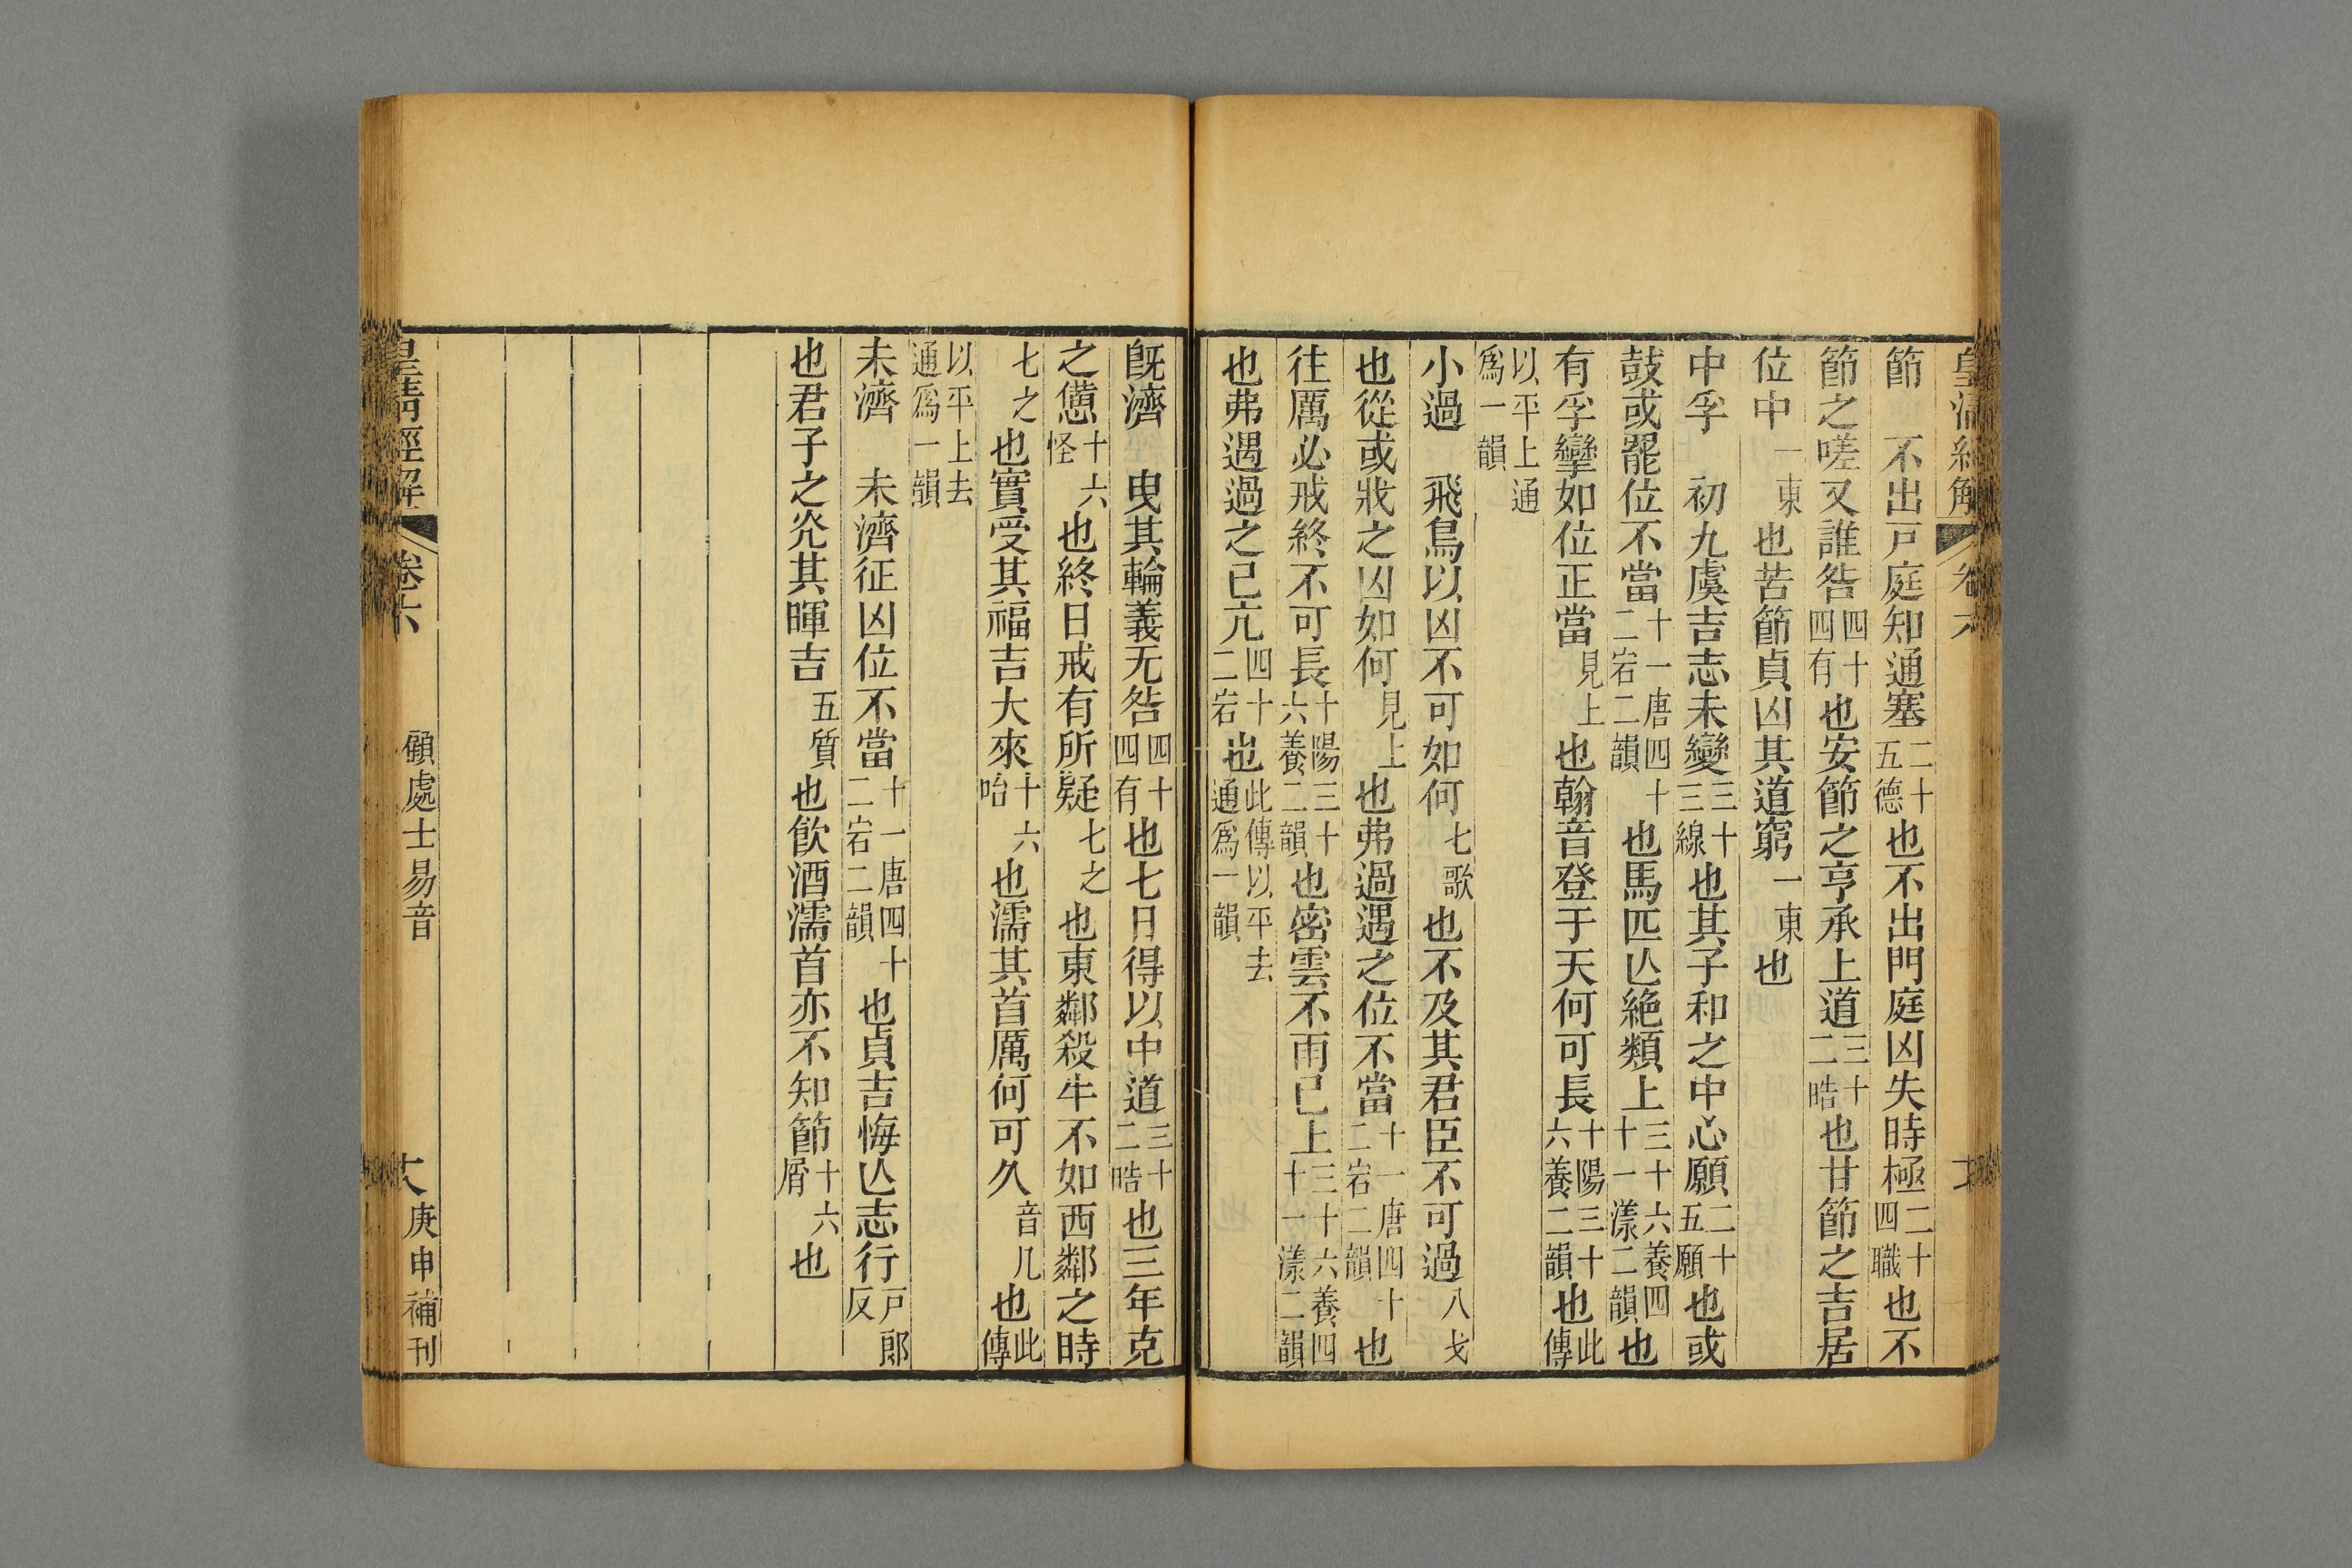 皇清經解 卷六
節 不出戸庭知通塞二十五德也不出門庭凶失時極二十四職也不
節之嗟又誰咎四十四有也安節之亨承上道三十二晧也甘節之吉居
位中一東也苦節貞凶其道窮一東也
中孚 初九虞吉志未變三十三線也其子和之中心願二十五願也或
鼓或罷位不當十一唐四十二宕二韻也馬匹亾絶類上三十六養四十一漾二韻也
有孚攣如位正當見上也翰音登于天何可長十陽三十六養二韻也此傳
以平上通爲一韻
小過 飛鳥以凶不可如何七歌也不及其君臣不可過八戈
也從或戕之凶如何見上也弗過遇之位不當十一唐四十二宕二韻也
往厲必戒終不可長十陽三十六養二韻也密雲不雨已上三十六養四十一漾二韻
也弗遇過之已亢四十二宕也此傳以平去通爲一韻
旣濟 曳其輪義无咎四十四有也七日得以中道三十二晧也三年克
之憊十六怪也終日戒有所疑七之也東鄰殺牛不如西鄰之時
七之也實受其福吉大來十六咍也濡其首厲何可久音几也此傳
以平上去通爲一韻
未濟 未濟征凶位不當十一唐四十二宕二韻也貞吉悔亾志行戸郎反
也君子之光其暉吉五質也飮酒濡首亦不知節十六屑也
皇淸經解 卷六 顧處士易音 庚申補刊